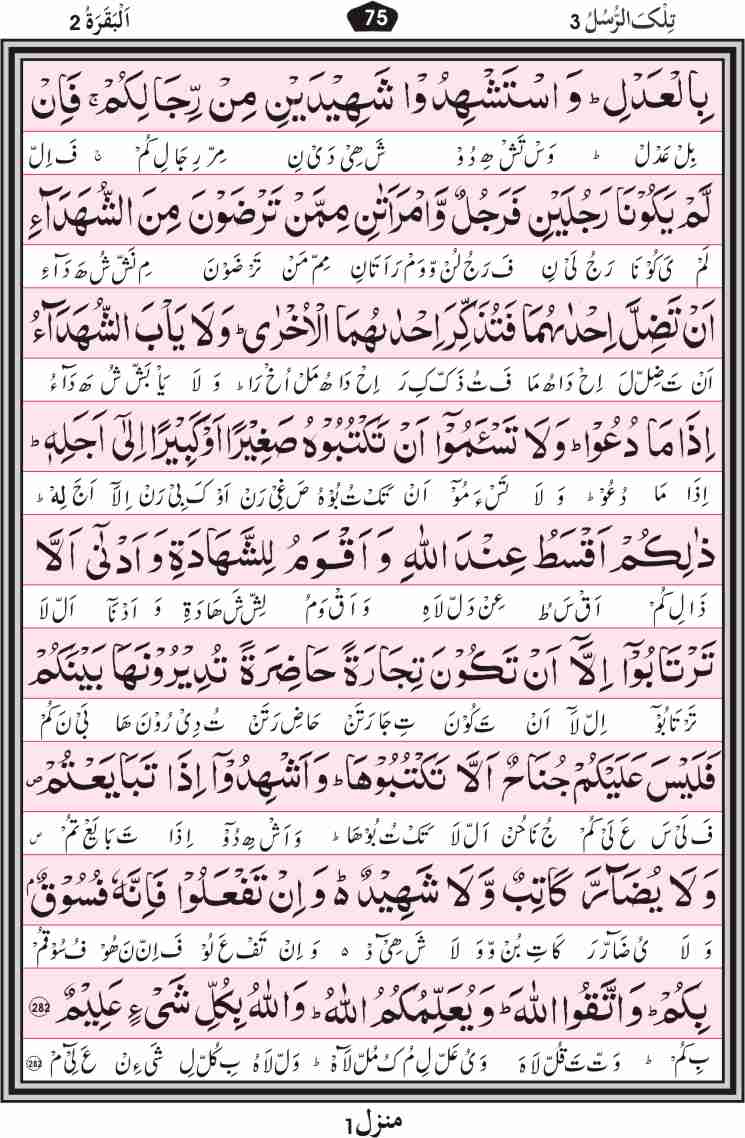 تِلْكَ الرُّسُلُ 3
75
اَلْبَقَرَةُ 2
بِالْعَدْلِ ؕ وَاسْتَشْهِدُوْا شَهِيْدَيْنِ مِنْ رِّجَالِكُمْ ۚ فَاِنْ
بِلْ عَدْلْ ؕ وَسْ تَشْ هِ دُوْ شَ هِىْ دَىْ نِ مِرْ رِ جَا لِ كُمْ ۚ فَ اِلّ
لَّمْ يَكُوْنَا رَجُلَيْنِ فَرَجُلٌ وَّامْرَاَتٰنِ مِمَّنْ تَرْضَوْنَ مِنَ الشُّهَدَآءِ
لَمْ يَ كُوْ نَا رَ جُ لَىْ نِ فَ رَ جُ لُنْ وَّ وَمْ رَ اَ تَانِ مِمّ مَنْ تَرْ ضَوْنَ مِ نَشّ شُ هَ دَآءِ
اَنْ تَضِلَّ اِحْدٰىهُمَا فَتُذَكِّرَ اِحْدٰىهُمَا الْاُخْرٰى ؕ وَلَا يَاْبَ الشُّهَدَآءُ
اَنْ تَ ضِلّ لَ اِحْ دَاهُ مَا فَ تُ ذَكّ كِ رَ اِحْ دَا هُ مَلْ اُخْ رَا ؕ وَ لَا يَاْ بَشّ شُ هَ دَآءُ
اِذَا مَا دُعُوْا ؕ وَلَا تَسْـَٔمُوْٓا اَنْ تَكْتُبُوْهُ صَغِيْرًا اَوْ كَبِيْرًا اِلٰٓى اَجَلِهٖ ؕ
اِذَا مَا دُعُوْ ؕ وَ لَا تَسْ ءَ مُوْٓ اَنْ تَكْ تُ بُوْهُ صَ غِىْ رَنْ اَوْ كَ بِىْ رَنْ اِلَآ اَجَ لِهْ ؕ
ذٰلِكُمْ اَقْسَطُ عِنْدَ اللّٰهِ وَاَقْوَمُ لِلشَّهَادَةِ وَاَدْنٰٓى اَلَّا
ذَالِ كُمْ اَقْ سَ طُ عِنْ دَلّ لَاهِ وَ اَقْ وَمُ لِشّ شَ هَا دَةِ وَ اَدْ نَآ اَلّ لَا
تَرْتَابُوْٓا اِلَّآ اَنْ تَكُوْنَ تِجَارَةً حَاضِرَةً تُدِيْرُوْنَهَا بَيْنَكُمْ
تَرْ تَا بُوْٓ اِلّ لَآ اَنْ تَ كُوْنَ تِ جَا رَ تَنْ حَاضِ رَ تَنْ تُ دِىْ رُوْنَ هَا بَىْ نَ كُمْ
فَلَيْسَ عَلَيْكُمْ جُنَاحٌ اَلَّا تَكْتُبُوْهَا ؕ وَاَشْهِدُوْٓا اِذَا تَبَايَعْتُمْ ۪
فَ لَىْ سَ عَ لَىْ كُمْ جُ نَا حُنْ اَلّ لَا تَكْ تُ بُوْهَا ؕ وَ اَشْ هِ دُوْٓ اِذَا تَ بَا يَعْ تُمْ ۪
وَلَا يُضَآرَّ كَاتِبٌ وَّلَا شَهِيْدٌ ؕ۬ وَاِنْ تَفْعَلُوْا فَاِنَّهٗ فُسُوْقٌۢ
وَ لَا يُ ضَآرّ رَ كَاتِ بُنْ وَّ وَ لَا شَ هِىْٓ دْ ہ وَ اِنْ تَفْ عَ لُوْ فَ اِنّ نَ هُوْ فُ سُوْ قُمْ
بِكُمْ ؕ وَاتَّقُوا اللّٰهَ ؕ وَيُعَلِّمُكُمُ اللّٰهُ ؕ وَاللّٰهُ بِكُلِّ شَىْءٍ عَلِيْمٌ 282
بِ كُمْ ؕ وَتّ تَ قُلّ لَاهَ وَ يُ عَلّ لِ مُ كُ مُلّ لَاهُ ؕ وَلّ لَاهُ بِ كُلّ لِ شَىْءِنْ عَ لِىْٓ مْ 282
منزل 1